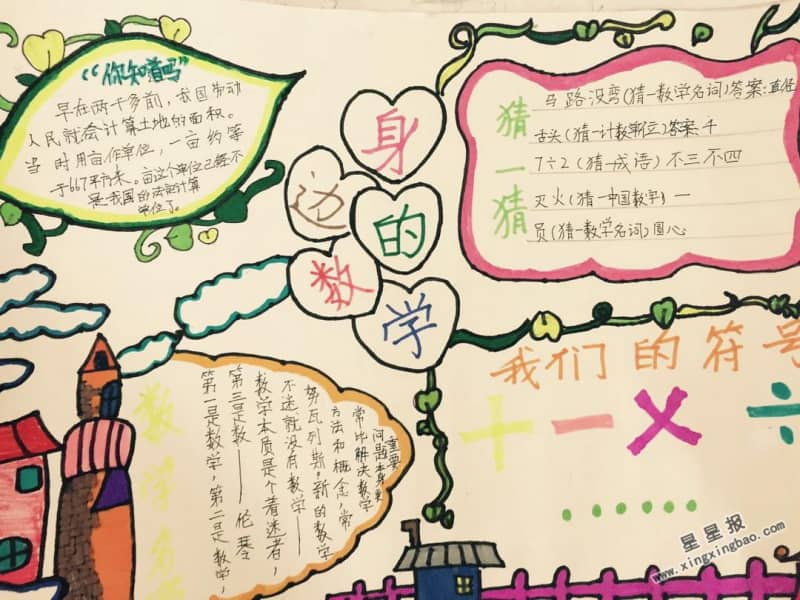 “你知道吗”
早在两千多前，我国劳动
人民就会计算土地的面积。
当时用亩作单位，一亩约等
于667平方米。亩这个单位已经不
是我国的法定计算
单位了。
身
边的
数
学
猜一猜
马路没弯(猜一数学名词)答案:直径
舌头(猜一计数单位)答案:千
7÷2(猜一成语)不三不四
灭火(猜一中国数字)一
员(猜一数学名词)圆心
我们的符号
+ − × ÷
......
数学名
第一是数学，第二是数学，
第三是数——伦琴
数学本质是个着迷者，
不迷就没有数学——
努瓦列斯。新的数学
方法和概念，常
常比解决数学
问题本身更
重要
星星报
www.xingxingbao.com